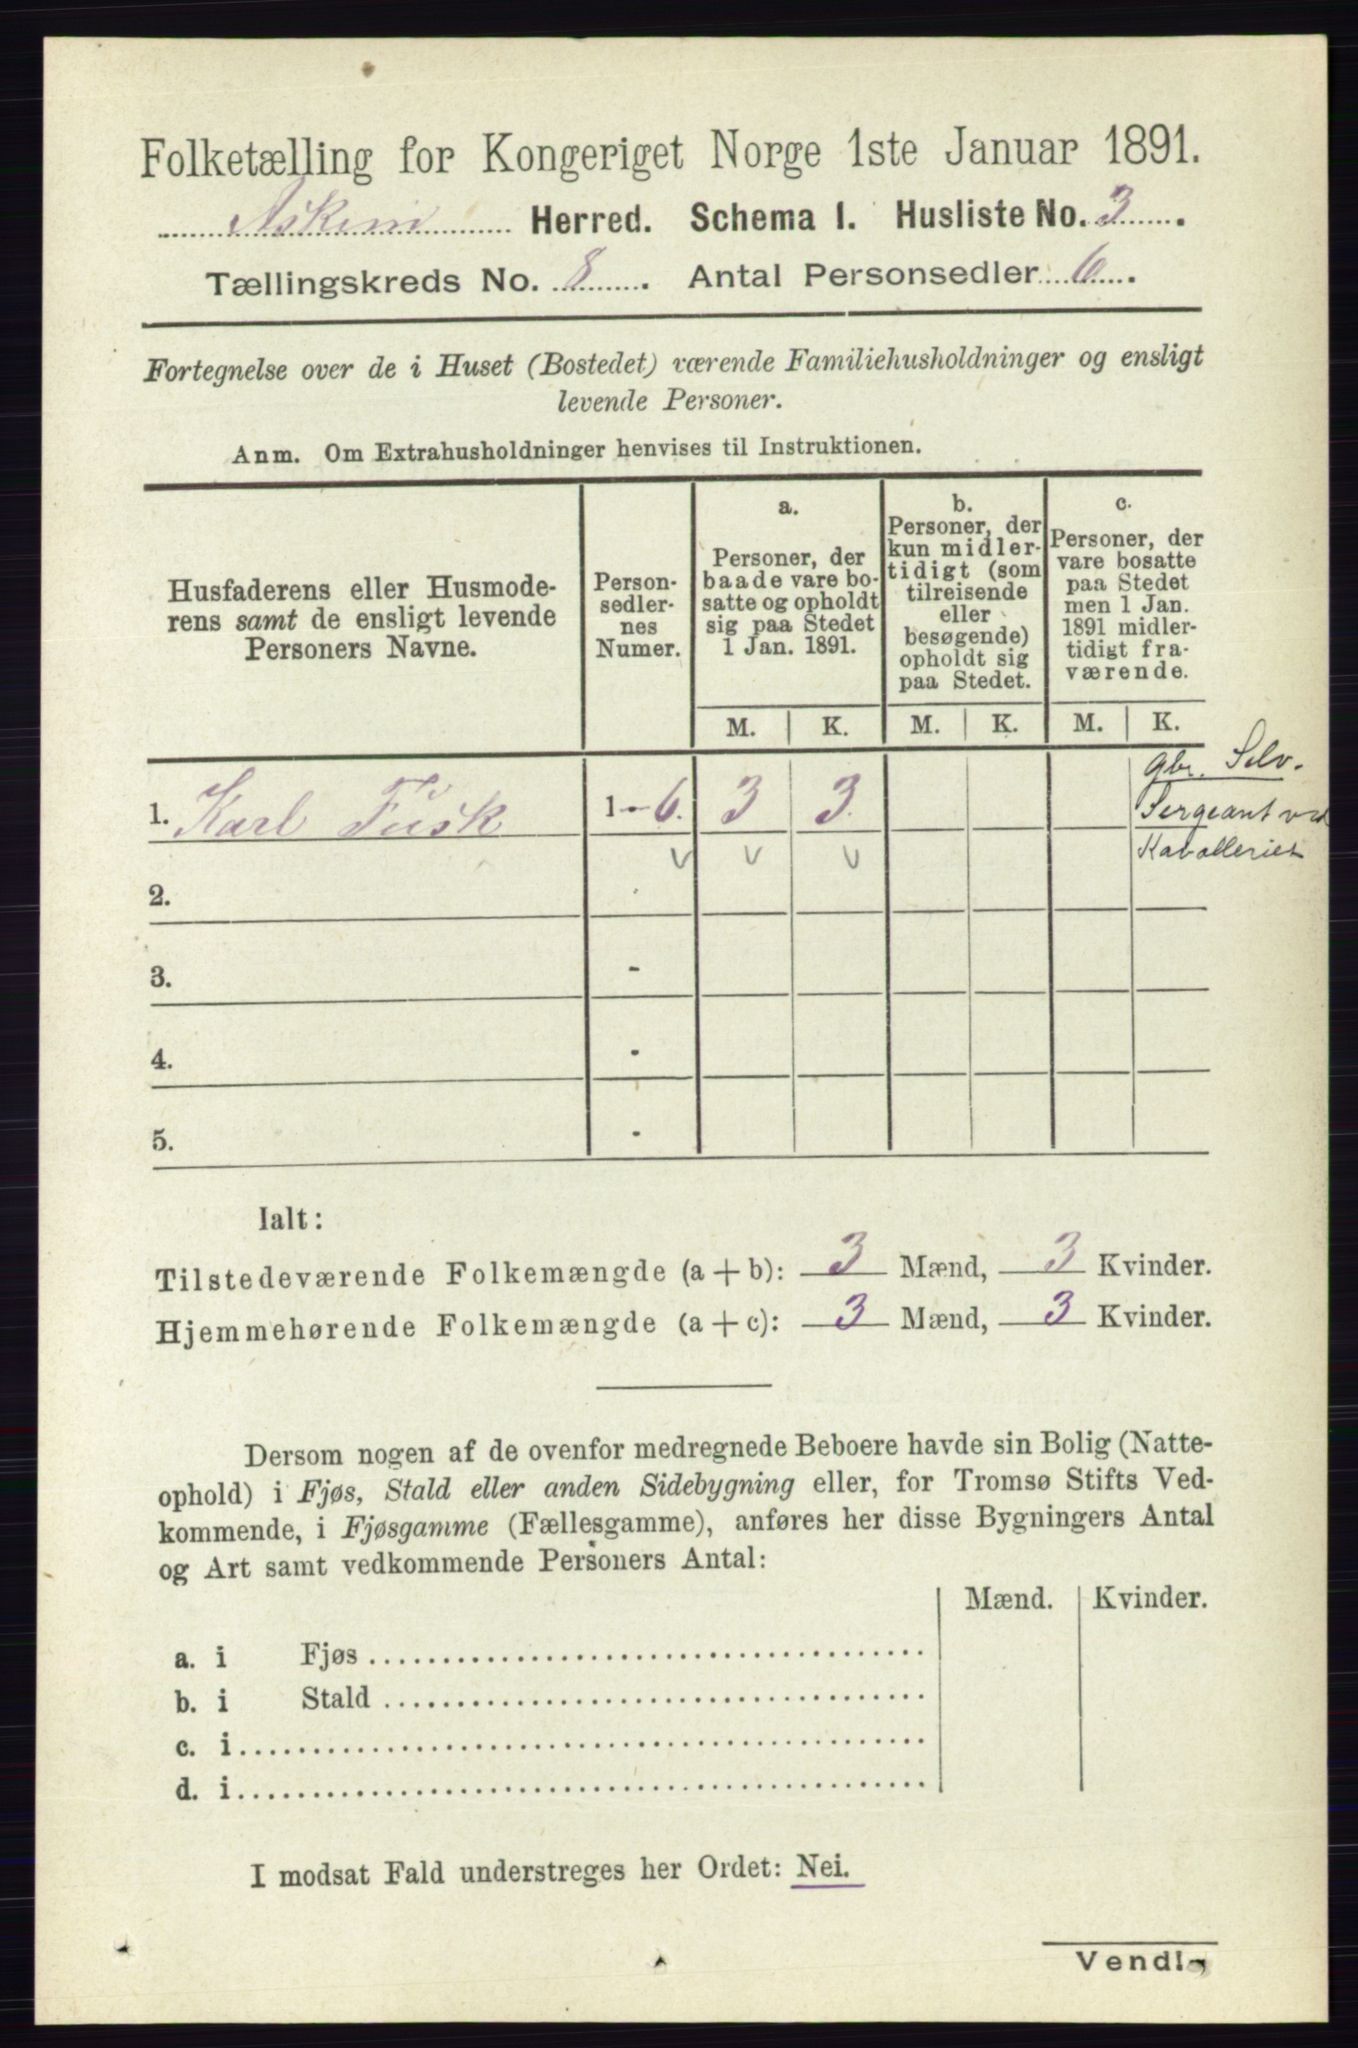 Folketælling for Kongeriget Norge 1ste Januar 1891.
Askim Herred. Schema I. Husliste No. 3.
Tællingskreds No. 8. Antal Personsedler 6.
Fortegnelse over de i Huset (Bostedet) værende Familiehusholdninger og ensligt
levende Personer.
Anm. Om Extrahusholdninger henvises til Instruktionen.
Husfaderens eller Husmode-
rens samt de ensligt levende
Personers Navne.
Person-
sedler-
nes
Numer.
a.
Personer, der
baade vare bo-
satte og opholdt
sig paa Stedet
1 Jan. 1891.
b.
Personer, der
kun midler-
tidigt (som
tilreisende
eller
besøgende)
opholdt sig
paa Stedet.
c.
Personer, der
vare bosatte
paa Stedet
men 1 Jan.
1891 midler-
tidigt fra-
værende.
M. K. M. K. M. K.
Gbr. Selv.
1. Karl Fusk 1-6. 3 3. Sergeant ved
v v v Kavalleriet
2.
3. -
4. -
5. -
Ialt:
Tilstedeværende Folkemængde (a + b): 3 Mænd, 3 Kvinder.
Hjemmehørende Folkemængde (a + c): 3 Mænd, 3 Kvinder.
Dersom nogen af de ovenfor medregnede Beboere havde sin Bolig (Natte-
ophold) i Fjøs, Stald eller anden Sidebygning eller, for Tromsø Stifts Ved-
kommende, i Fjøsgamme (Fællesgamme), anføres her disse Bygningers Antal
og Art samt vedkommende Personers Antal:
Mænd. Kvinder.
a. i Fjøs
b. i Stald
c. i
d. i
I modsat Fald understreges her Ordet: Nei.
Vend!